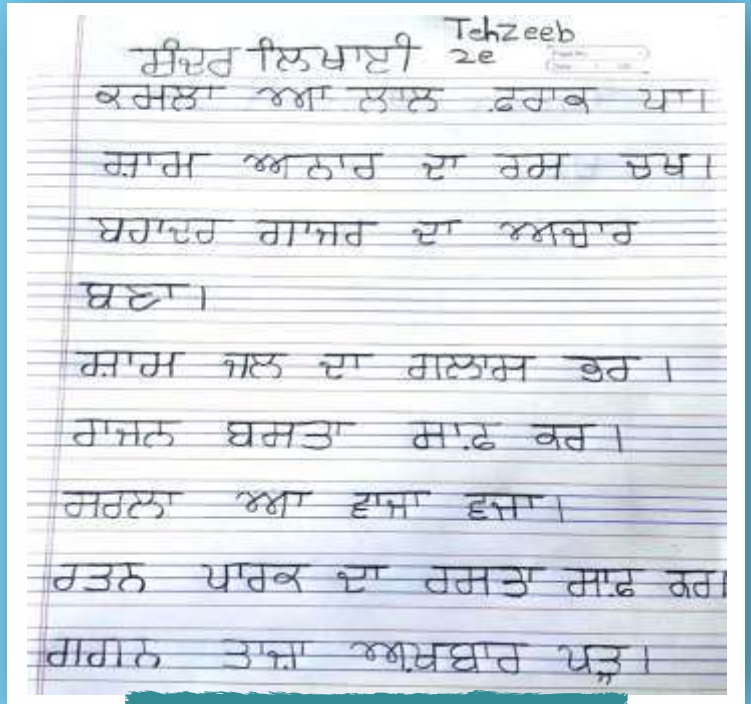 Tehzeeb
ਸੁੰਦਰ ਲਿਖਾਈ 2e
ਕਮਲਾ ਆ ਲਾਲ ਫ਼ਰਾਕ ਪਾ।
ਸ਼ਾਮ ਅਨਾਰ ਦਾ ਰਸ ਚਖ।
ਬਹਾਦਰ ਗਾਜਰ ਦਾ ਅਚਾਰ
ਬਣਾ।
ਸ਼ਾਮ ਜਲ ਦਾ ਗਲਾਸ ਭਰ।
ਰਾਜਨ ਬਸਤਾ ਸਾਫ਼ ਕਰ।
ਸਰਲਾ ਆ ਵਾਜਾ ਵਜਾ।
ਰਤਨ ਪਾਰਕ ਦਾ ਰਸਤਾ ਸਾਫ਼ ਕਰ।
ਗਗਨ ਤਾਜ਼ਾ ਅਖ਼ਬਾਰ ਪੜ੍ਹ।